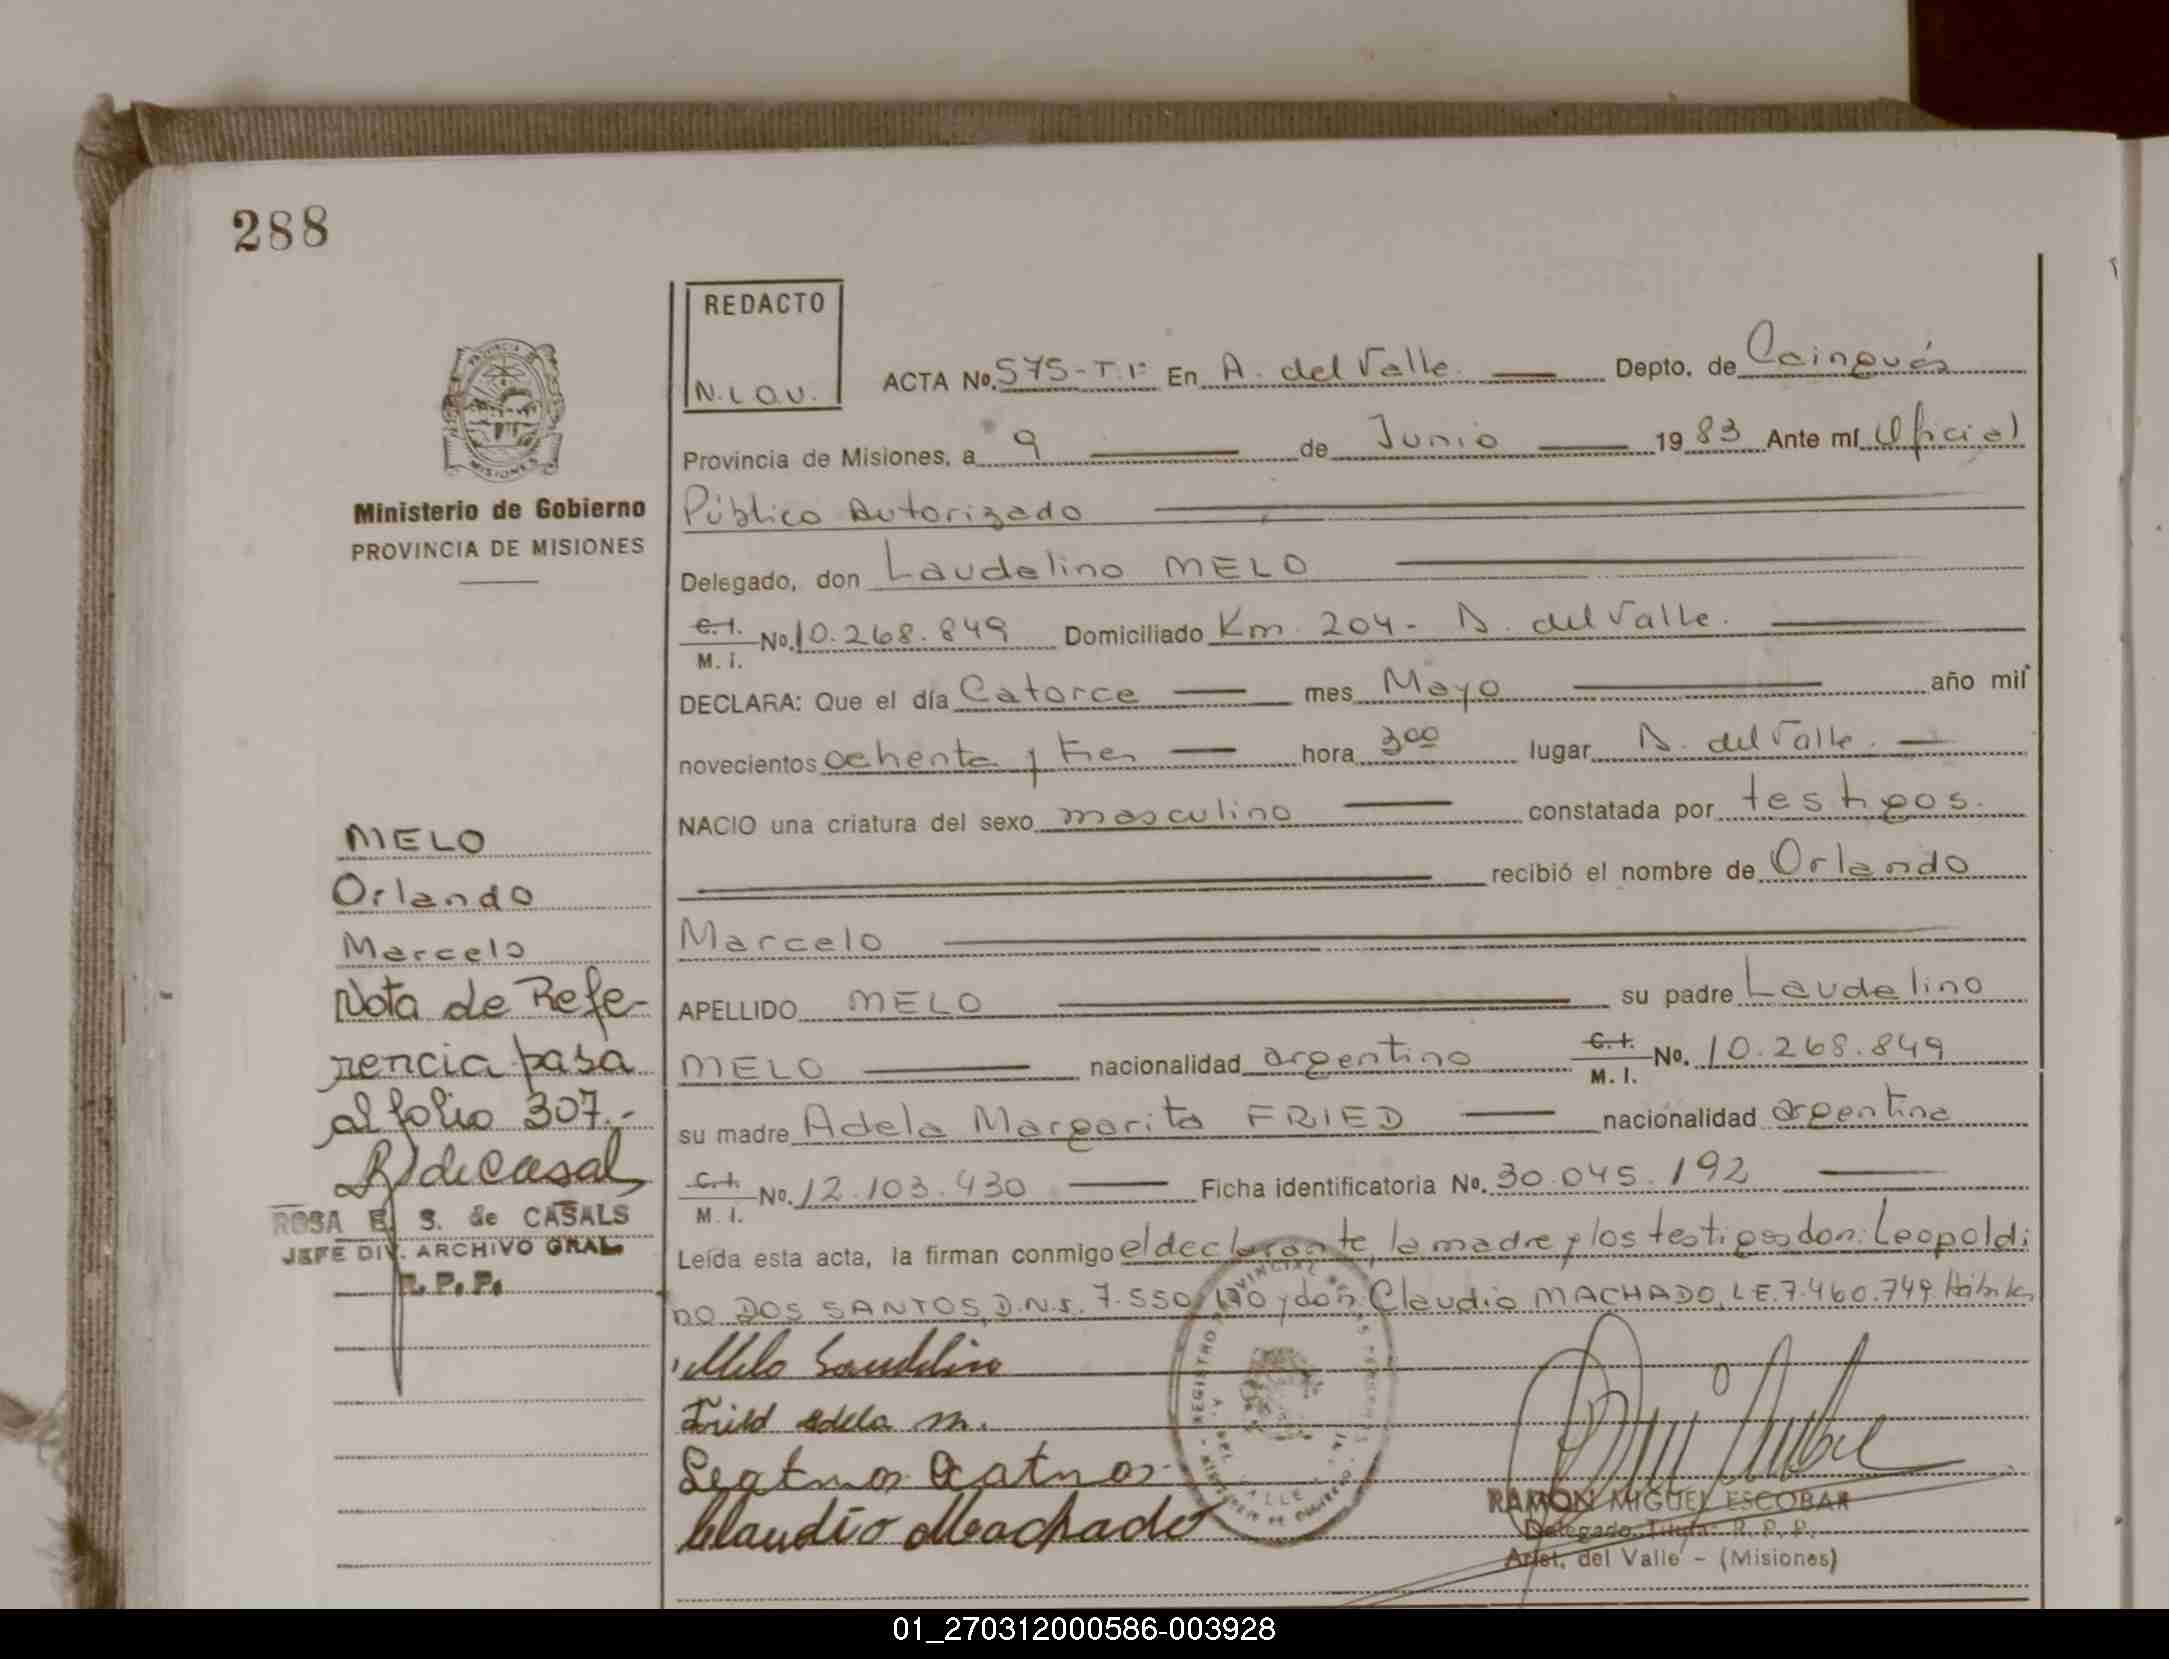 288
REDACTO
N.L.O.U.
ACTA No. 575-T.1º En A. del Valle. Depto. de Cainguás
Provincia de Misiones, a 9 de Junio 1983 Ante mí Oficial
Público Autorizado
Delegado, don Laudelino MELO
C.I. M.I. No. 10.268.849 Domiciliado Km. 204 - A. del Valle.
DECLARA: Que el día Catorce mes Mayo año mil
novecientos ochenta y tres hora 3 00 lugar A. del Valle.
NACIO una criatura del sexo masculino constatada por testigos.
recibió el nombre de Orlando
Marcelo
APELLIDO MELO su padre Laudelino
MELO nacionalidad argentino C.I. M.I. No. 10.268.849
su madre Adela Margarita FRIED nacionalidad argentina
C.I. M.I. No. 12.103.430 Ficha identificatoria No. 30.045.192
Leída esta acta, la firman conmigo el declarante, la madre y los testigos don: Leopoldi
no DOS SANTOS, D.N.I. 7.550. y don Claudio MACHADO, L.E. 7.460.749
Melo Laudelino
Fried Adela M.
Claudio Machado
RAMON MIGUEL ESCOBAR
Delegado Titular R. P. P.
Arist. del Valle - (Misiones)
PROVINCIA DE
MISIONES
Ministerio de Gobierno
PROVINCIA DE MISIONES
MELO
Orlando
Marcelo
Nota de Refe-
rencia pasa
al folio 307.-
R de Casals
ROSA E. S. de CASALS
JEFE DIV. ARCHIVO GRAL.
R. P. P.
01_270312000586-003928